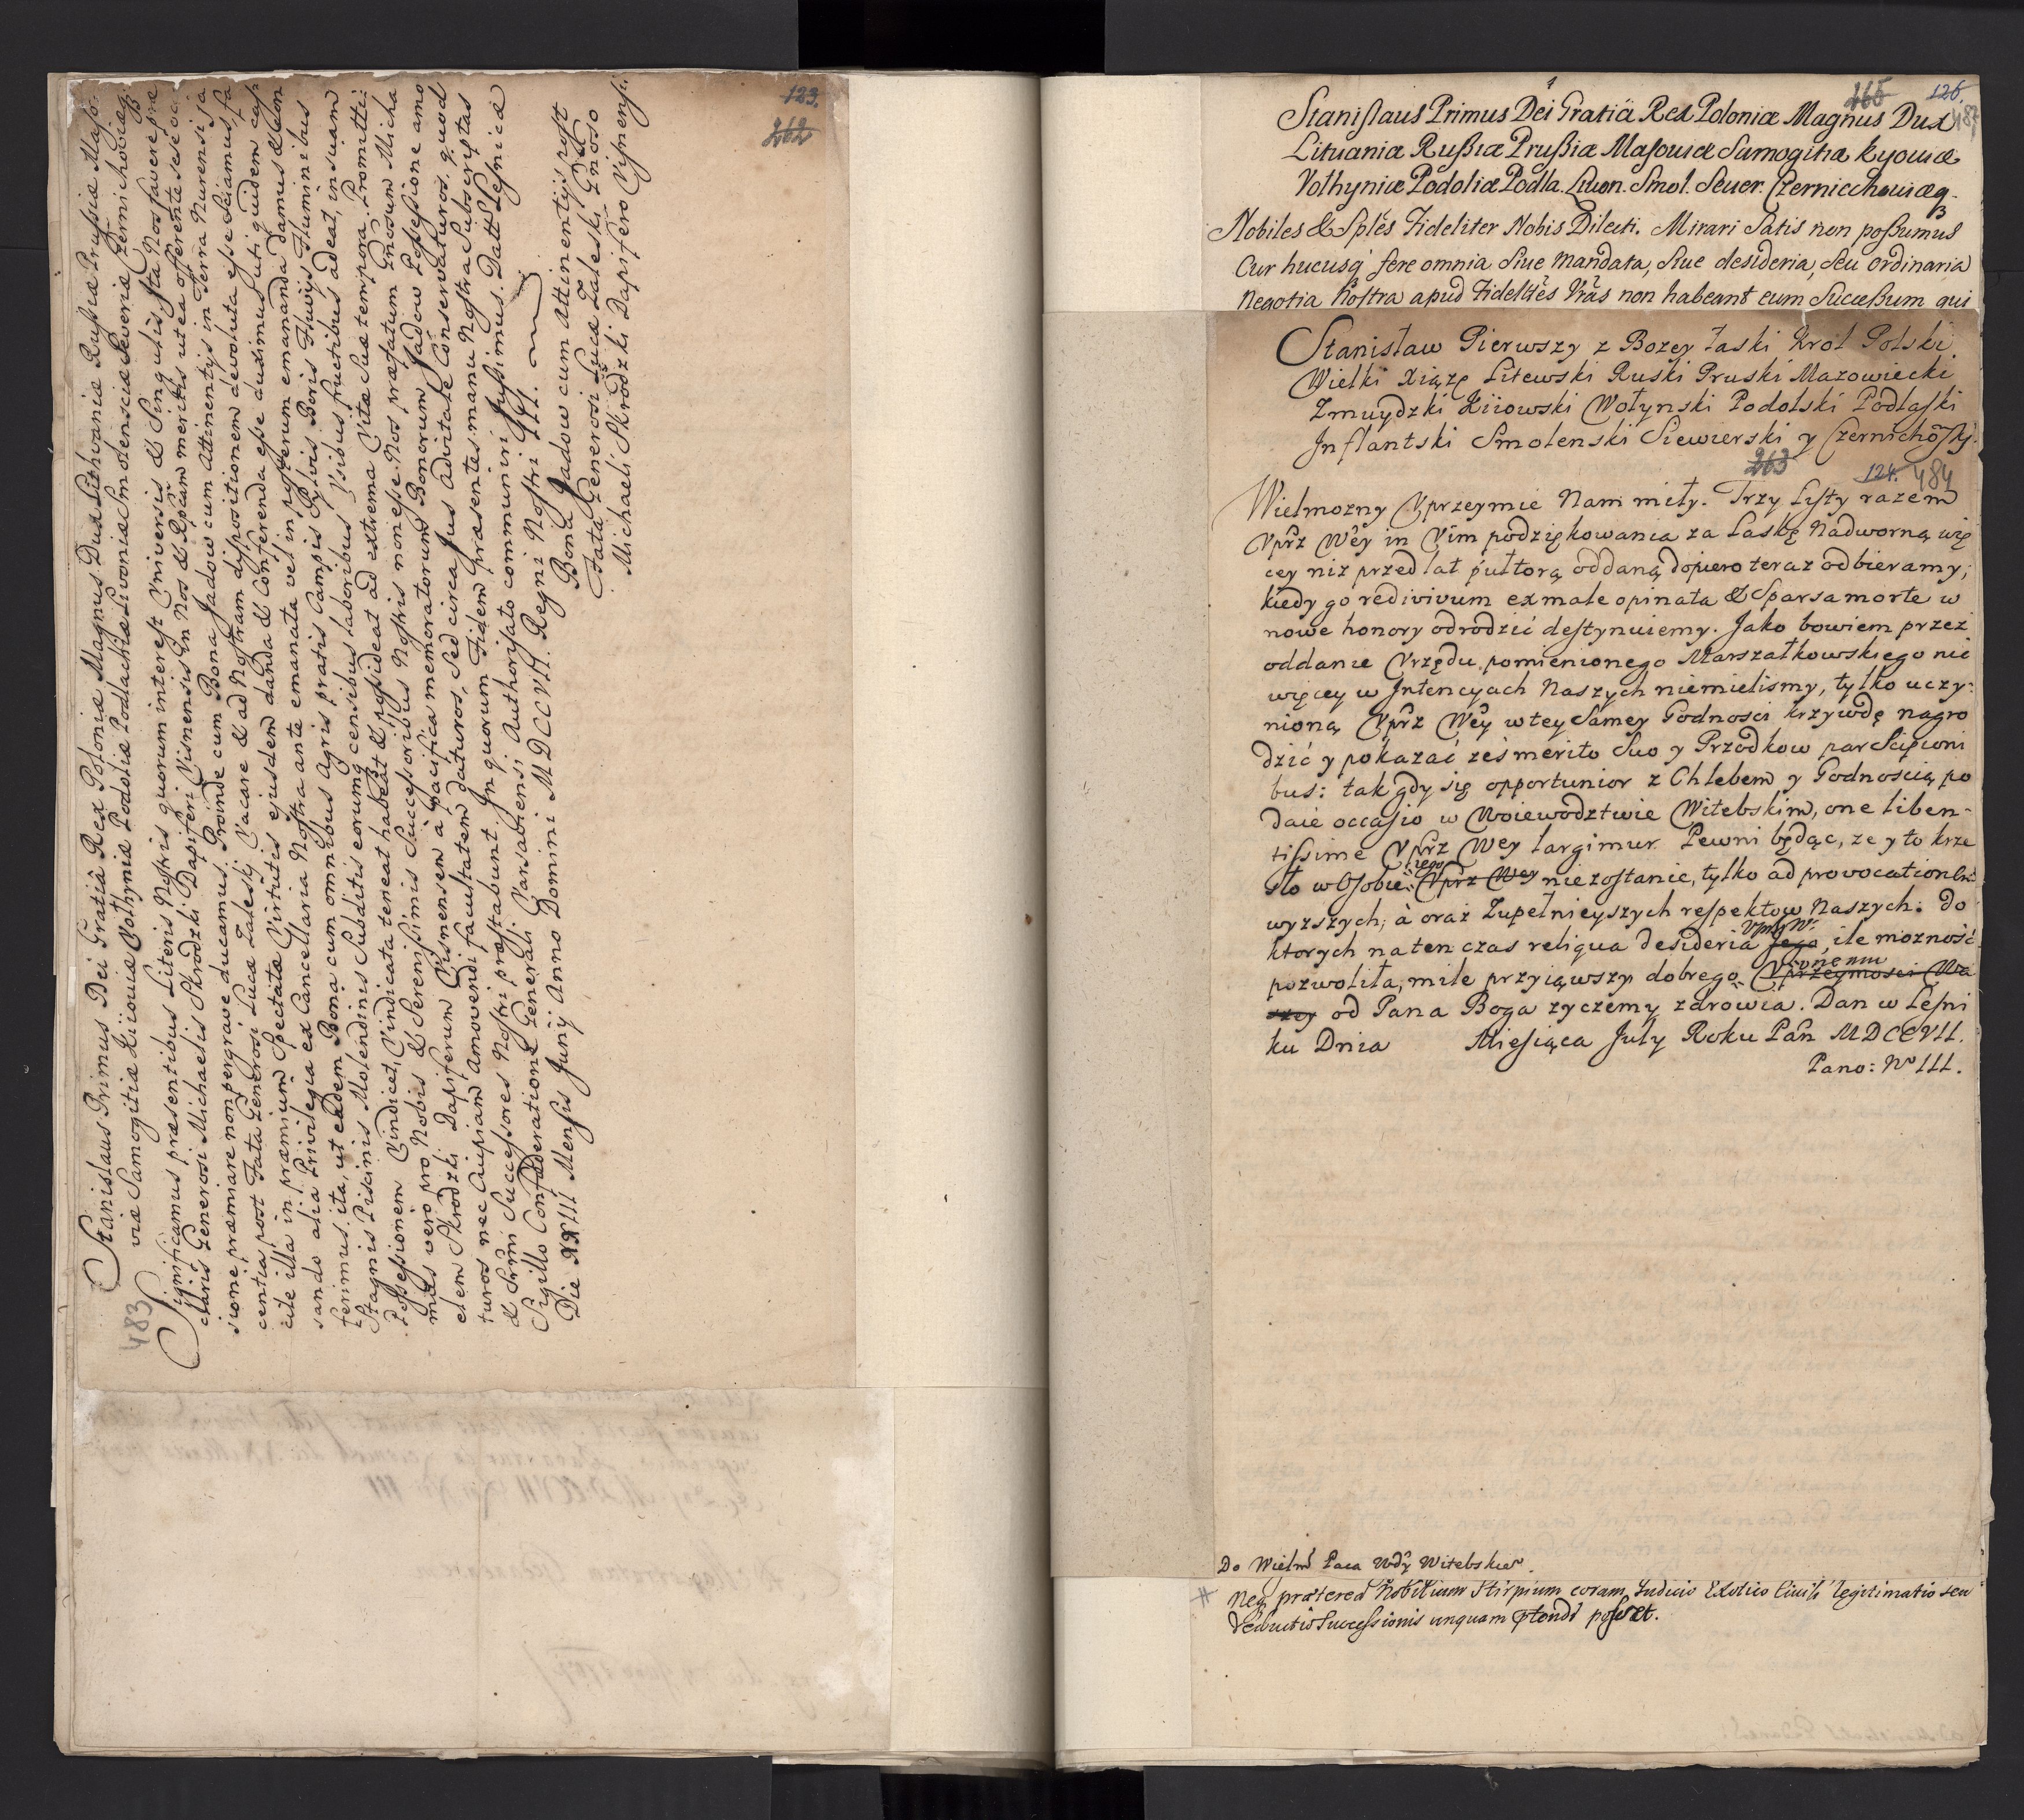 123.
262
483
Stanislaus Primus Dei Gratiâ Rex Poloniæ Magnus Dux Lithvaniæ Russiæ Prussiæ Maso
viæ Samogitiæ Kiioviæ Volhyniæ Podoliæ Podlachiæ Livoniæ Smolensciæ Severiæ Czernichoviæq;
Significamus præsentibus Literis Nostris quorum interest Universis & Singulis. Ita Nos favere præ
claris Generosi Michaelis Skrodzki Dapiferi Visnensis in Nos & Rpcam meritis ut ea offerente sese oca
sione præmiare non pergrave ducamus. Proinde cum Bona Jadow cum Attinentijs in Terra Nurensi ja
centia post Fata Generosi Lucæ Zaleskj Vacare & ad Nostram dispositionem devoluta esse Sciamus, fa
cile illa in præmium Spectatæ Virtutis ejusdem danda & Conferenda esse duximus, uti quidem cas
sando alia Privilegia ex Cancellaria Nostra ante emanata vel in posterum emananda damus & Con
ferimus. ita, ut eadem Bona cum omnibus Agris pratis Campis Sylvis Boris Fluvijs Fluminibus
Stagnis Piscinis Molendinis Subditis eorumq censibus laboribus Vsibus fructibus adeat, in suam
Possessionem Vindicet, Vindicata teneat habeat & possideat ad extrema Vitæ Suæ tempora. Promitti:
mus vero pro Nobis & Serenissimis Successoribus Nostris non esse Nos præfatum Gnosum Micha
elem Skrodzki Dapiferum Visnensem à pacifica memoratorum Bonorum Jadow Possessione amo
turos nec Cuipiam Amovendi facultatem daturos, Sed circa Jus Advitale Conservaturos. quod
& Srmi Successores Nostri præstabunt. In quorum Fidem præsentes manu Nostra Subscriptas
Sigillo Confœderationis Generalis Varsaviensi Authorisato communiri jussimus. Datt Lesnicæ
Die XXIII Mensis Junÿ Anno Domini MDCCVII. Regni Nostri III.
Bona Jadow cum Attinentijs post
Fata Generosi Lucæ Zaleski Gnoso
Michaeli Skrodzki Dapifero Visnensi.
265 126.
487
Stanislaus Primus Dei Gratiâ Rex Poloniæ Magnus Dux
Lituaniæ Rußiæ Prußiæ Masouiæ Samogitiæ Kyouiæ
Volhyniæ Podoliæ Podla. Liuon. Smol. Seuer. Czerniechouiæq.
Nobiles & Sples Fideliter Nobis Dilecti. Mirari Satis non poßumus
Cur hucusq́ fere omnia Siue mandata, Siue desideria, Seu ordinaria
Negotia Nostra apud Fidelites Vras non habeant eum Successum qui
Stanisław Pierwszy z Bozey łaski Krol Polski
Wielki Xiązę Litewski Ruski Pruski Mazowiecki
Zmuydzki Kiiowski Wołynski Podolski Podlaski
Inflantski Smolenski Siewierski y Czernichoski.
263 124. 484
Wielmozny Vprzeymie Nam miły. Trzy Listy razem
Vprz Wey in Vim podziękowania za Laskę Nadworną wię
cey niz przed lat pułtorą oddaną, dopiero teraz odbieramy;
kiedy go redivivum ex male opinata & Sparsa morte w
nowe honory odrodzić destynuiemy. Jako bowiem przez
oddanie Vrzędu pomienionego Marszałkowskiego nic
więcey w Intencyach Naszych niemielismy, tylko uczy:
nioną Vprz Wey w tey Samey Godnosci krzywdę nagro
dzić y pokazać ześ merito Suo y Przodkow par Scipioni
bus: tak gdy się opportunior z Chlebem y Godnoscią po
daie occasio w Woiewodztwie Witebskim, one liben-
tissime Vprz Wey largimur. Pewni będąc, ze y to krze
sło w Osobie iego Vprz Wey nie zostanie, tylko ad provocationem
wyzszych, à oraz Zupełnieyszych respektow Naszych: do
ktorych na ten czas reliqua desideria Jego Vprz W:, ile mozność
pozwoliła, mile przyiąwszy dobrego onemu Vprzeymosci Wa
szey od Pana Boga zyczemy zdrowia. Dan w Lesni
ku Dnia Miesiąca July Roku Pan MDCCVII.
Pano: No III.
Do Wielm Paca Wdy Witebskio.
# Neq prætereà Nobilium Stirpium coram Judicio Exotico Ciuili legitimatio seu
deductio Successionis unquam ptendi posset.